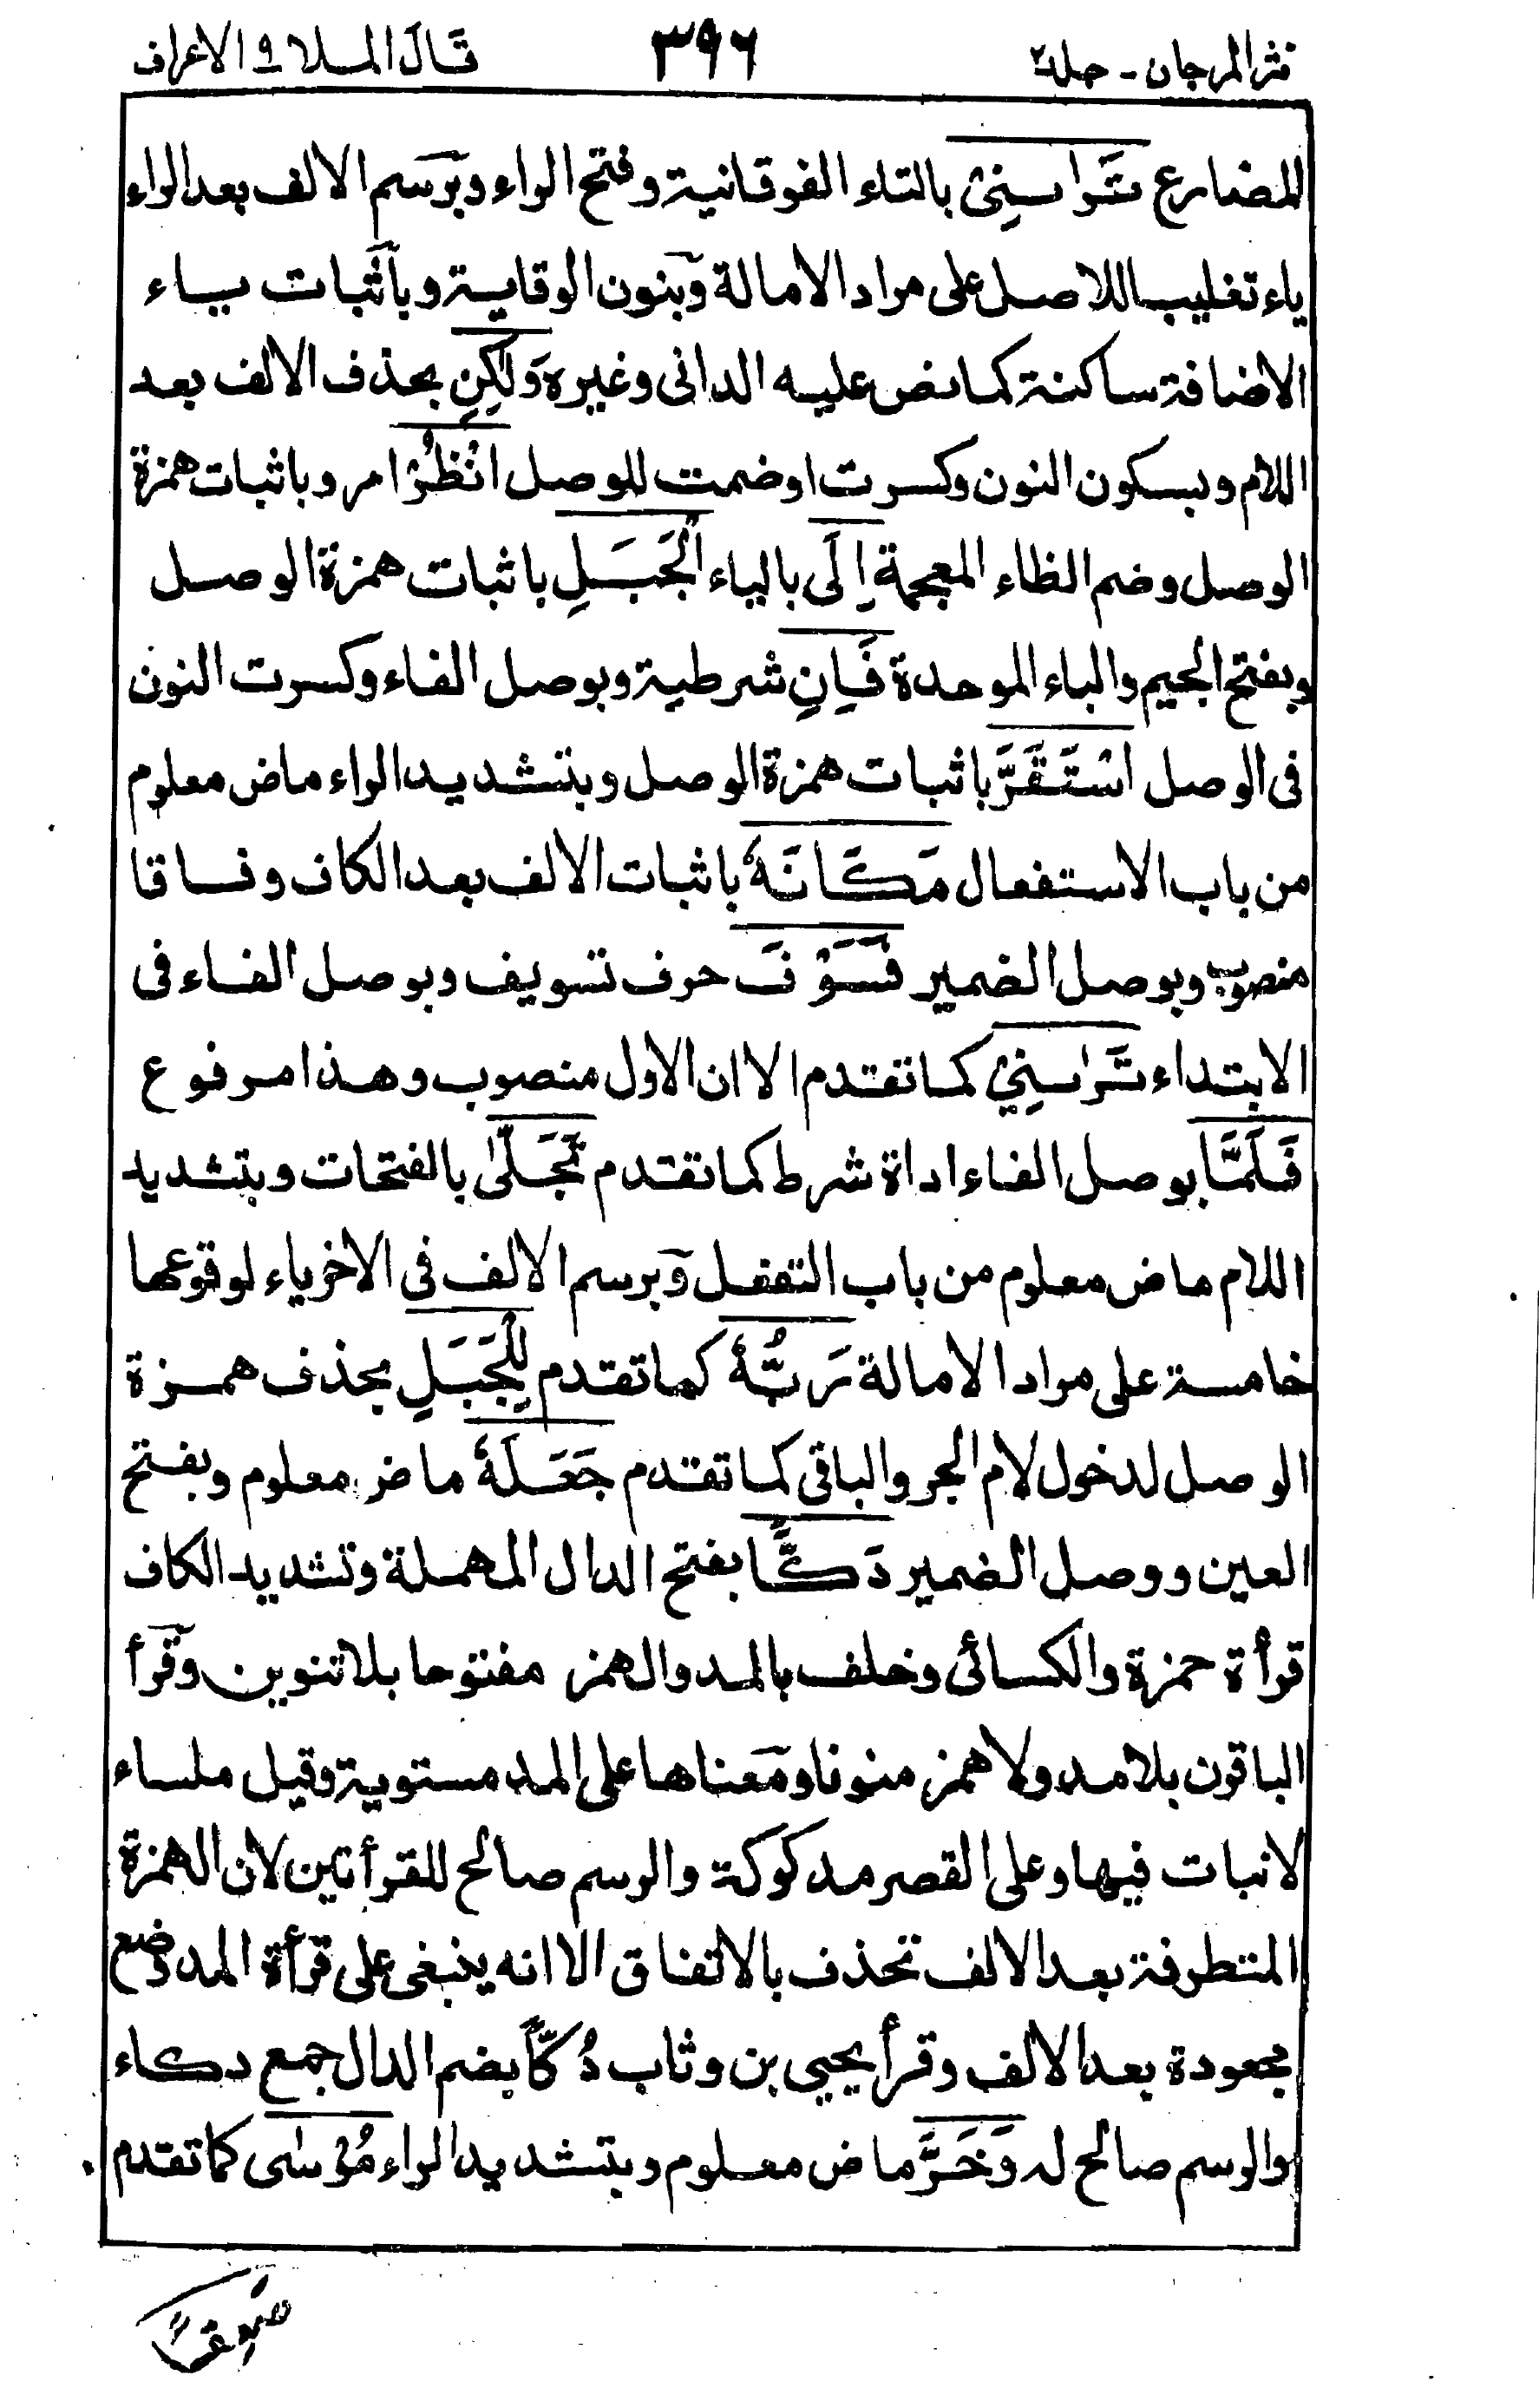 نثر المرجان - جلد ٢
٣٩٦
قال الملا ٩ الاعراف
المضارع تَرَاىنِىْ بالتاء الفوقانية وفتح الراء وبرسم الالف بعد الراء
ياء تغليبا للاصل على مراد الامالة وبنون الوقاية وباثبات ياء
الاضافة ساكنة كما نص عليه الدانى وغيره وَلٰكِنِ بحذف الالف بعد
اللام وبسكون النون وكسرت او ضمت للوصل انْظُرْ امر وباثبات همزة
الوصل وضم الظاء المعجمة اِلَى بالياء الْجَبَلِ باثبات همزة الوصل
وبفتح الجيم والباء الموحدة فَاِنِ شرطية وبوصل الفاء وكسرت النون
فى الوصل اسْتَقَرَّ باثبات همزة الوصل وبتشديد الراء ماض معلوم
من باب الاستفعال مَكَانَهٗ باثبات الالف بعد الكاف وفاقا
منصوب وبوصل الضمير فَسَوْفَ حرف تسويف وبوصل الفاء فى
الابتداء تَرٰىنِىْ كما تقدم الا ان الاول منصوب وهذا مرفوع
فَلَمَّا بوصل الفاء اداة شرط كما تقدم تَجَلّٰى بالفتحات وبتشديد
اللام ماض معلوم من باب التفعل وبرسم الالف فى الاخر ياء لوقوعها
خامسة على مراد الامالة رَبُّهٗ كما تقدم لِلْجَبَلِ بحذف همزة
الوصل لدخول لام الجر والباقى كما تقدم جَعَلَهٗ ماض معلوم وبفتح
العين ووصل الضمير دَكًّا بفتح الدال المهملة وتشديد الكاف
قرأة حمزة والكسائى وخلف بالمد والهمز مفتوحا بلا تنوين وقرأ
الباقون بلا مد ولا همز منونا ومعناها على المد مستوية وقيل ملساء
لا نبات فيها وعلى القصر مدكوكة والرسم صالح للقرأتين لان الهمزة
المتطرفة بعد الالف تحذف بالاتفاق الا انه ينبغى على قرأة المد وضع
مجعودة بعد الالف وقرأ يحيى بن وثاب دُكًّا بضم الدال جمع دكاء
والرسم صالح له وَخَرَّ ماض معلوم وبتشديد الراء مُوْسٰى كما تقدم
صَعِقًا